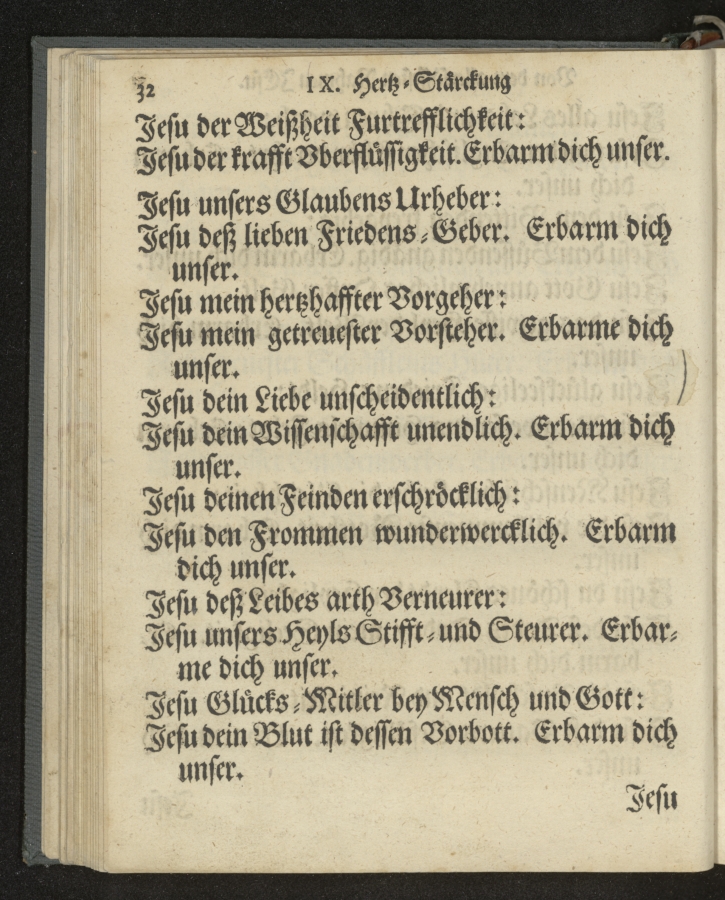 32 IX. Hertz-Stärckung
Jesu der Weißheit Furtrefflichkeit:
Jesu der krafft Vberflüssigkeit. Erbarm dich unser.
Jesu unsers Glaubens Urheber:
Jesu deß lieben Friedens-Geber. Erbarm dich
unser.
Jesu mein hertzhaffter Vorgeher:
Jesu mein getreuester Vorsteher. Erbarme dich
unser.
Jesu dein Liebe unscheidentlich:
Jesu dein Wissenschafft unendlich. Erbarm dich
unser.
Jesu deinen Feinden erschröcklich:
Jesu den Frommen wunderwercklich. Erbarm
dich unser.
Jesu deß Leibes arth Verneurer:
Jesu unsers Heyls Stifft- und Steurer. Erbar-
me dich unser.
Jesu Glücks-Mitler bey Mensch und Gott:
Jesu dein Blut ist dessen Vorbott. Erbarm dich
unser.
Jesu